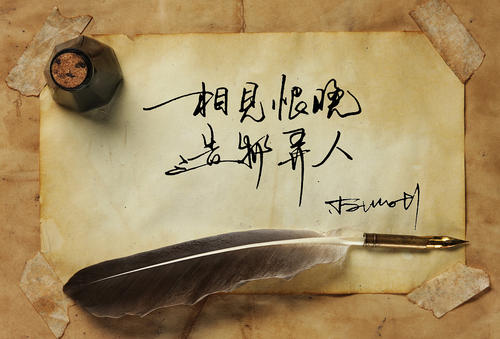 相见恨晚
造物弄人